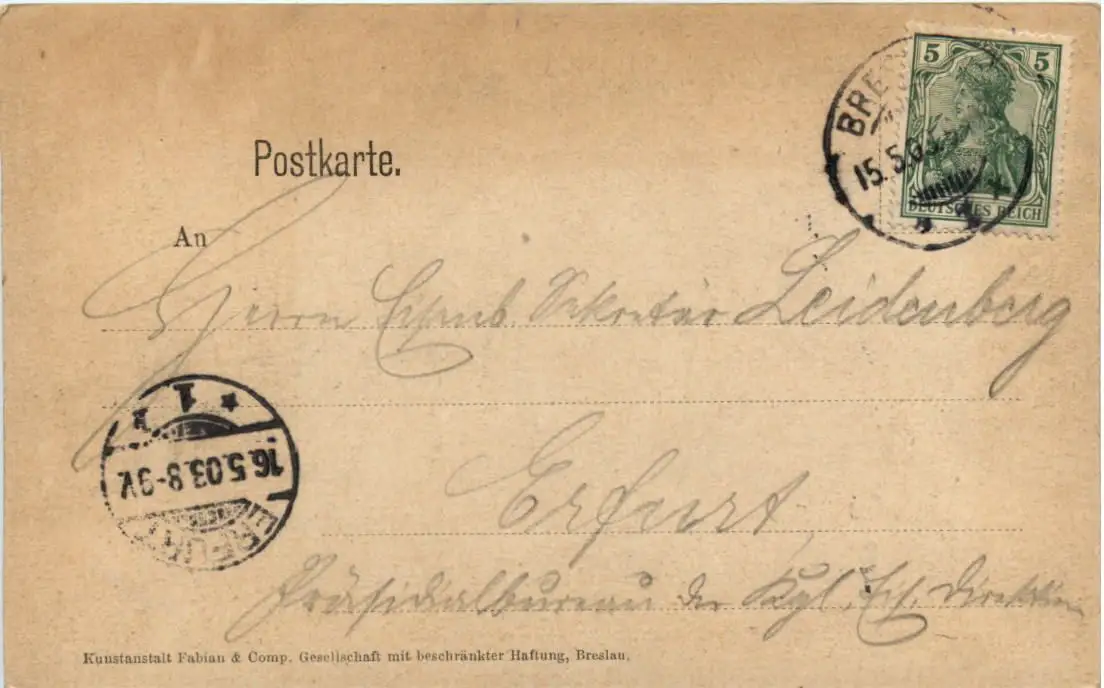 5 5
DEUTSCHES REICH
BRES
15.5.03
Postkarte.
An
Herrn Eisenb. Sekretär Leidenberg
Erfurt
Präsidialbureau der Kgl. Eis. Direktion
* 1 *
16.5.03.8-9V.
ERFURT
Kunstanstalt Fabian & Comp. Gesellschaft mit beschränkter Haftung, Breslau.